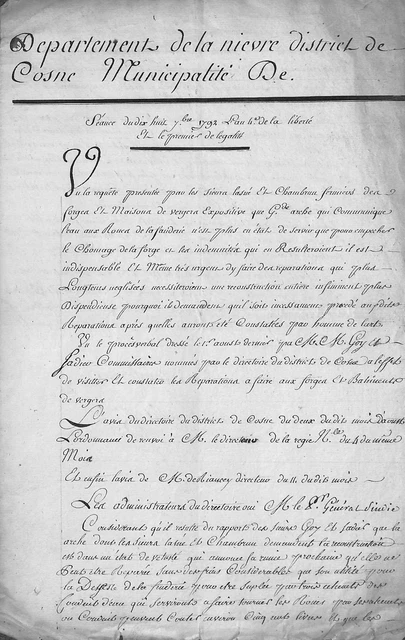 Departement de la nievre district de
Cosne Municipalité De.
Séance du dix huit 7.bre 1792 L'an 4.e de la liberté
Et le premier de legalité
Vu la requête presentée par les sieurs Et Chambrun fermiers des
forges Et Maisons de vergers Expositive que arche qui Communique
leau aux Roues de la fonderie n'est plus en etat de servir que pour empecher
le Chomage de la forge et les indemnités qui en Resulteroient il est
indispensable Et Même tres urgent dy faire des reparations qui plus
Longtems negligées necessiteroient une reconstruction entiere infiniment plus
Dispendieuse pourquoi ils demandent qu'il soit incessament procedé auxdites
Reparations après quelles auront été Constatées par homme de lart
Vu le procès verbal dressé le aoust dernier par M. M. Goy Et
Commissaires nommés par le directoire du district de Cosne à leffet
de visitter Et constater les Reparations a faire aux forges Et Batiments
de vergers
L'avis du directoire du district de Cosne du deux du dit mois
Lordonnance de renvoi à M. le directeur de la regie N.le du 4 du même
Mois
Et enfin lavis de M. directeur du 11. du dit mois
Les administrateurs du directoire oui M. le P.r General Sindic
Considerant qu'il resulte du rapport des sieurs Goy Et que la
arche dont les sieurs Et Chambrun demandent la reconstruction
est dans un état de vetusté qui annonce sa ruine prochaine quelle ne
Peut être Reparée sans des frais Considerables que son utilité pour
La Deffense de la fonderie peut etre suplée par trois
Conduit deau qui serviront a faire tourner les Roues
ou Conduit peuvent Couter environ Cinq cent livres Et que les